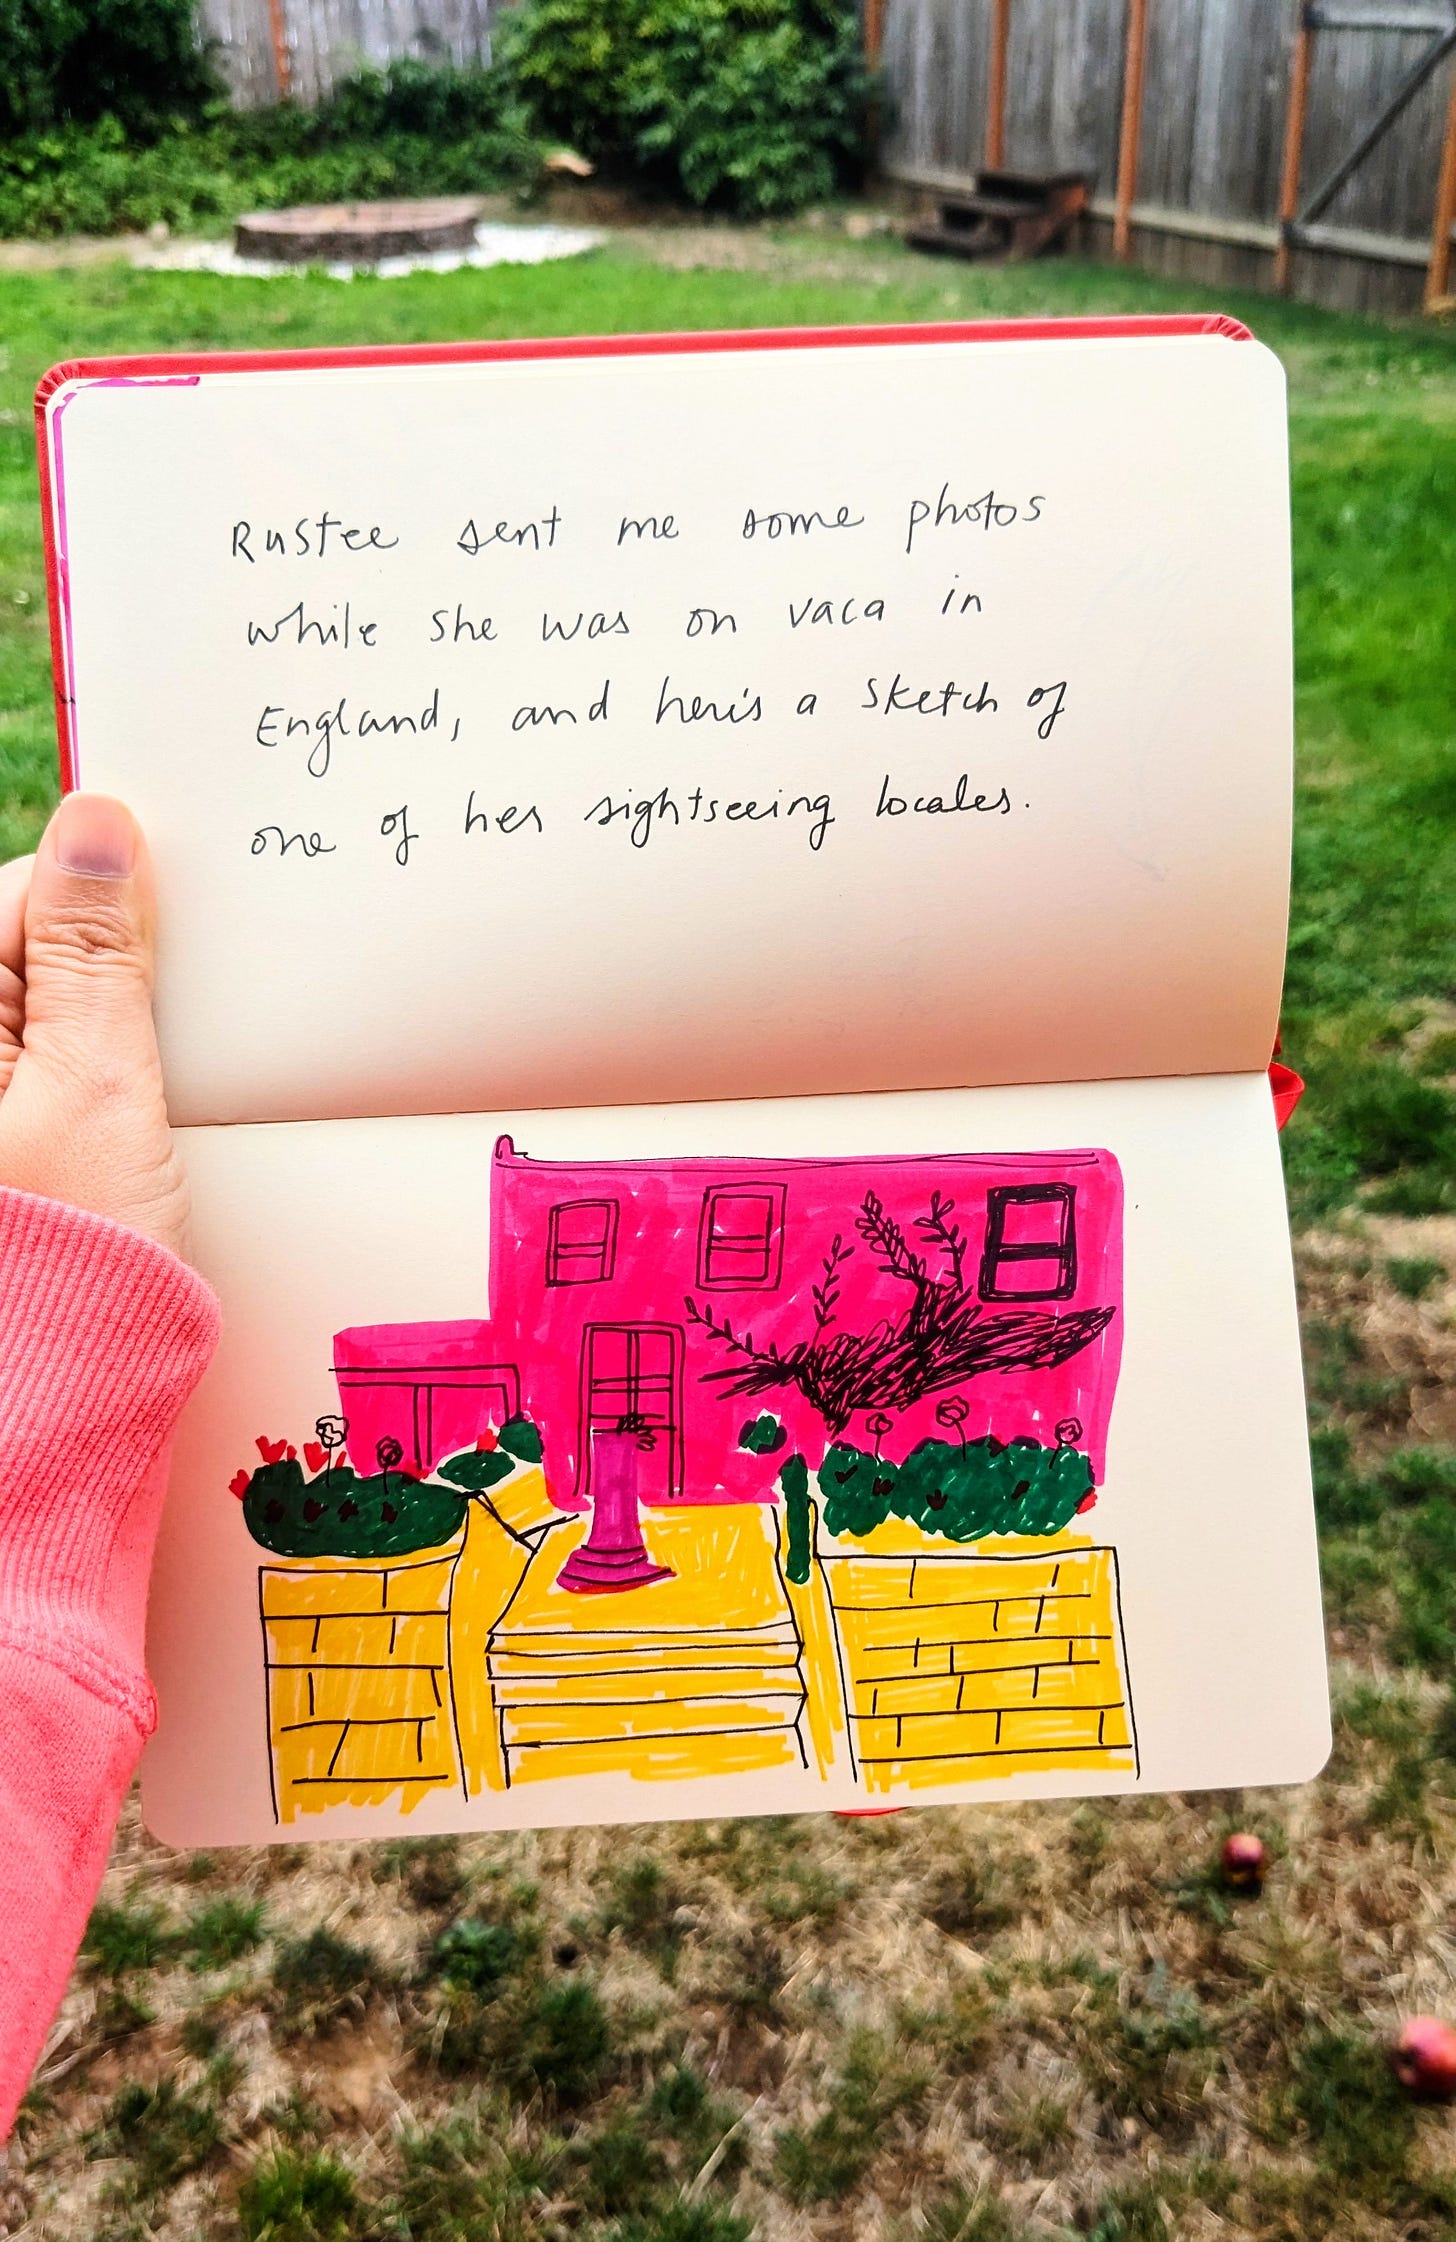 Rustee sent me some photos
while she was on vaca in
England, and here's a sketch of
one of her sightseeing locales.